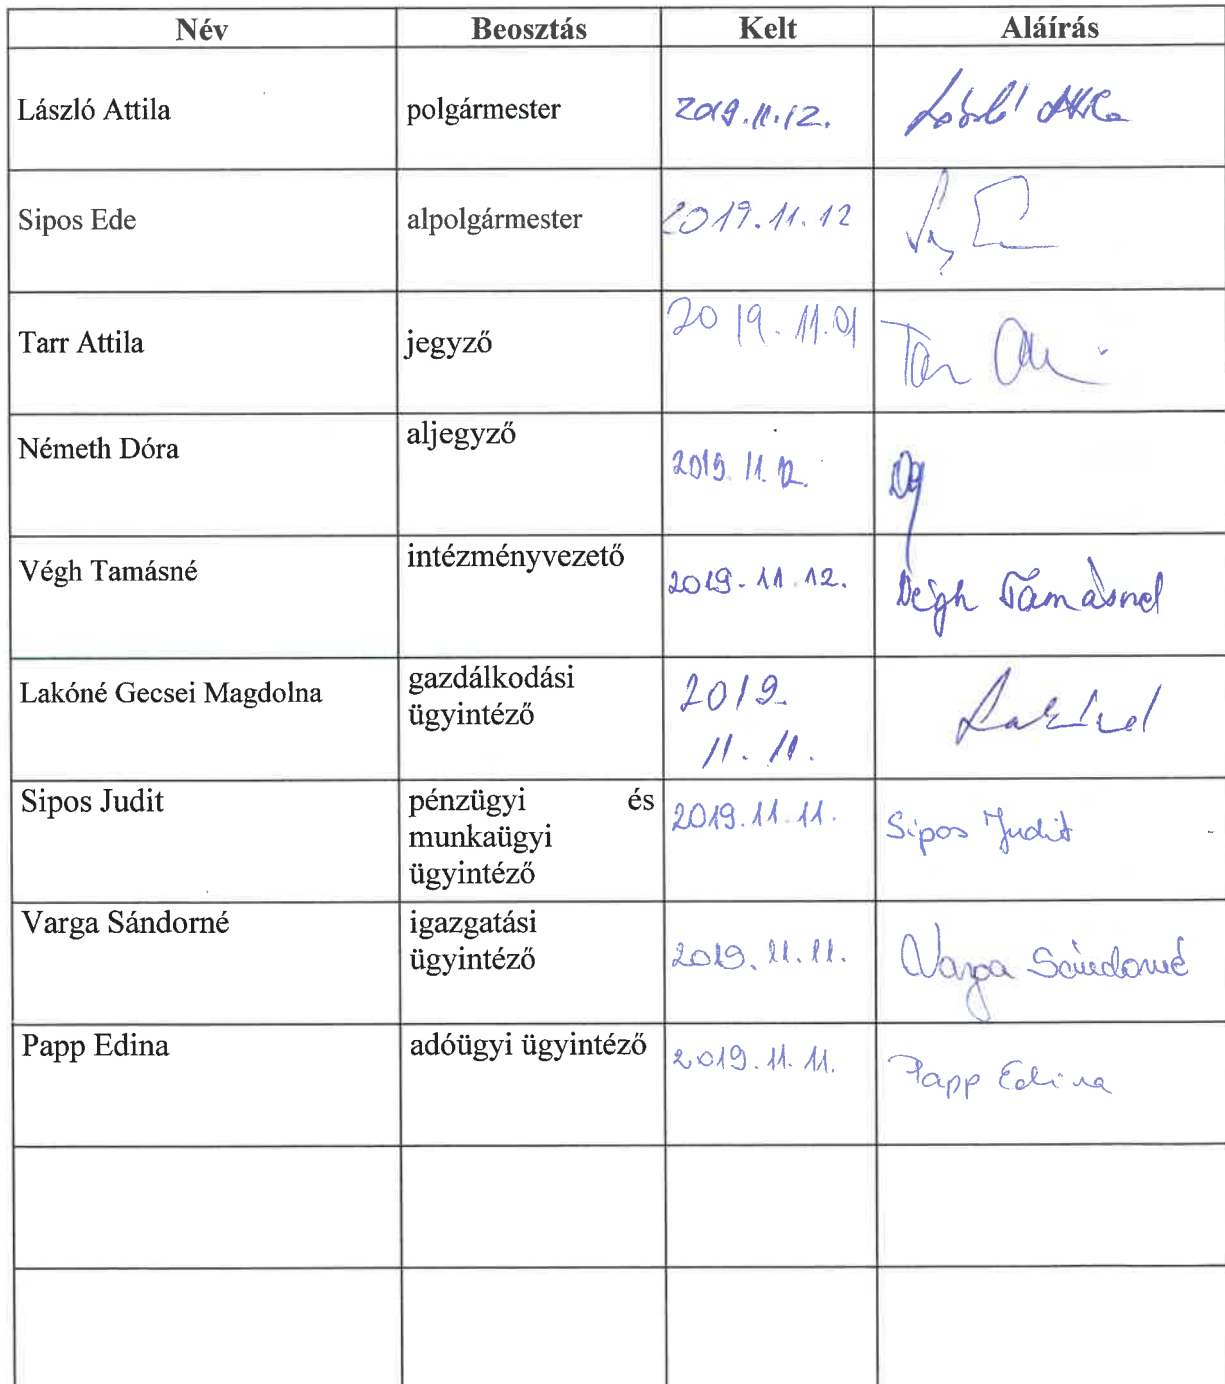 Név Beosztás Kelt Aláírás
László Attila polgármester 2019.11.12. László Attila
Sipos Ede alpolgármester 2019.11.12
Tarr Attila jegyző 2019.11.01 Tarr
Németh Dóra aljegyző 2019.11.12.
Végh Tamásné intézményvezető 2019.11.12. Végh Tamásné
Lakóné Gecsei Magdolna gazdálkodási
ügyintéző
2019.
11.11.
Lakóné
Sipos Judit pénzügyi és
munkaügyi
ügyintéző
2019.11.11. Sipos Judit
Varga Sándorné igazgatási
ügyintéző
2019.11.11. Varga Sándorné
Papp Edina adóügyi ügyintéző 2019.11.11. Papp Edina